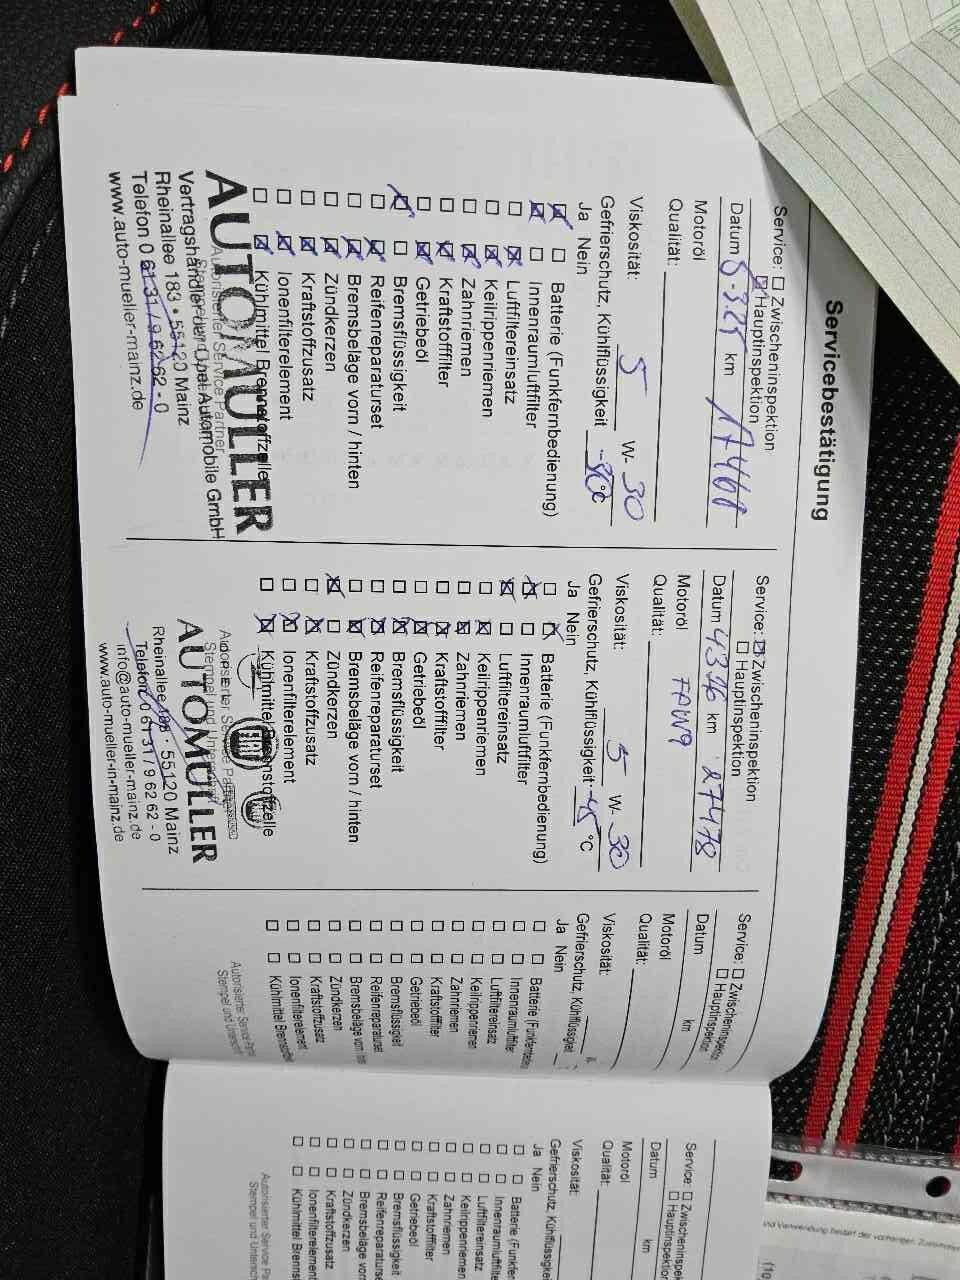 Servicebestätigung
Service: ☐ Zwischeninspektion
☒ Hauptinspektion
Datum 5.3.25 km 17460
Motoröl
Qualität:
Viskosität: 5 W- 30
Gefrierschutz, Kühlflüssigkeit -30 °C
Ja Nein
☒ ☐ Batterie (Funkfernbedienung)
☒ ☐ Innenraumluftfilter
☐ ☒ Luftfiltereinsatz
☐ ☒ Keilrippenriemen
☐ ☒ Zahnriemen
☐ ☒ Kraftstofffilter
☐ ☒ Getriebeöl
☒ ☐ Bremsflüssigkeit
☐ ☒ Reifenreparaturset
☐ ☒ Bremsbeläge vorn / hinten
☐ ☒ Zündkerzen
☐ ☒ Kraftstoffzusatz
☐ ☒ Ionenfilterelement
☐ ☒ Kühlmittel Brennstoffzelle
Autorisierter Service Partner
AUTOMÜLLER
Vertragshändler der Opel Automobile GmbH
Rheinallee 183 • 55120 Mainz
Telefon 0 61 31 / 9 62 62 - 0
www.auto-mueller-mainz.de
Service: ☒ Zwischeninspektion
☐ Hauptinspektion
Datum 4.3.26 km 27478
Motoröl
Qualität:
Viskosität: 5 W- 30
Gefrierschutz, Kühlflüssigkeit: -45 °C
Ja Nein
☐ ☒ Batterie (Funkfernbedienung)
☒ ☐ Innenraumluftfilter
☒ ☐ Luftfiltereinsatz
☐ ☒ Keilrippenriemen
☐ ☒ Zahnriemen
☐ ☒ Kraftstofffilter
☐ ☒ Getriebeöl
☐ ☒ Bremsflüssigkeit
☐ ☒ Reifenreparaturset
☐ ☒ Bremsbeläge vorn / hinten
☒ ☐ Zündkerzen
☐ ☒ Kraftstoffzusatz
☐ ☒ Ionenfilterelement
☐ ☒ Kühlmittel Brennstoffzelle
Autorisierter Service Partner
Stempel und Unterschrift
FIAT
AUTOMÜLLER
Rheinallee 183 · 55120 Mainz
Telefon 0 61 31 / 9 62 62 - 0
info@auto-mueller-mainz.de
www.auto-mueller-in-mainz.de
Service: ☐ Zwischeninspektion
☐ Hauptinspektion
Datum km
Motoröl
Qualität:
Viskosität:
Gefrierschutz, Kühlflüssigkeit
Ja Nein
☐ ☐ Batterie
☐ ☐ Innenraumluftfilter
☐ ☐ Luftfiltereinsatz
☐ ☐ Keilrippenriemen
☐ ☐ Zahnriemen
☐ ☐ Kraftstofffilter
☐ ☐ Getriebeöl
☐ ☐ Bremsflüssigkeit
☐ ☐ Reifenreparaturset
☐ ☐ Bremsbeläge vorn
☐ ☐ Zündkerzen
☐ ☐ Kraftstoffzusatz
☐ ☐ Ionenfilterelement
☐ ☐ Kühlmittel
Autorisierter Service
Stempel und
Service: ☐ Zwischeninspek
☐ Hauptinspektion
Datum km
Motoröl
Qualität:
Viskosität:
Gefrierschutz, Kühlflüssigkeit
Ja Nein
☐ ☐ Batterie (Funkfer
☐ ☐ Innenraumluftfilter
☐ ☐ Luftfiltereinsatz
☐ ☐ Keilrippenriemen
☐ ☐ Zahnriemen
☐ ☐ Kraftstofffilter
☐ ☐ Getriebeöl
☐ ☐ Bremsflüssigkeit
☐ ☐ Reifenreparaturse
☐ ☐ Bremsbeläge vor
☐ ☐ Zündkerzen
☐ ☐ Kraftstoffzusatz
☐ ☐ Ionenfilterelement
☐ ☐ Kühlmittel Brenns
Autorisierter Service Pa
Stempel und Untersch